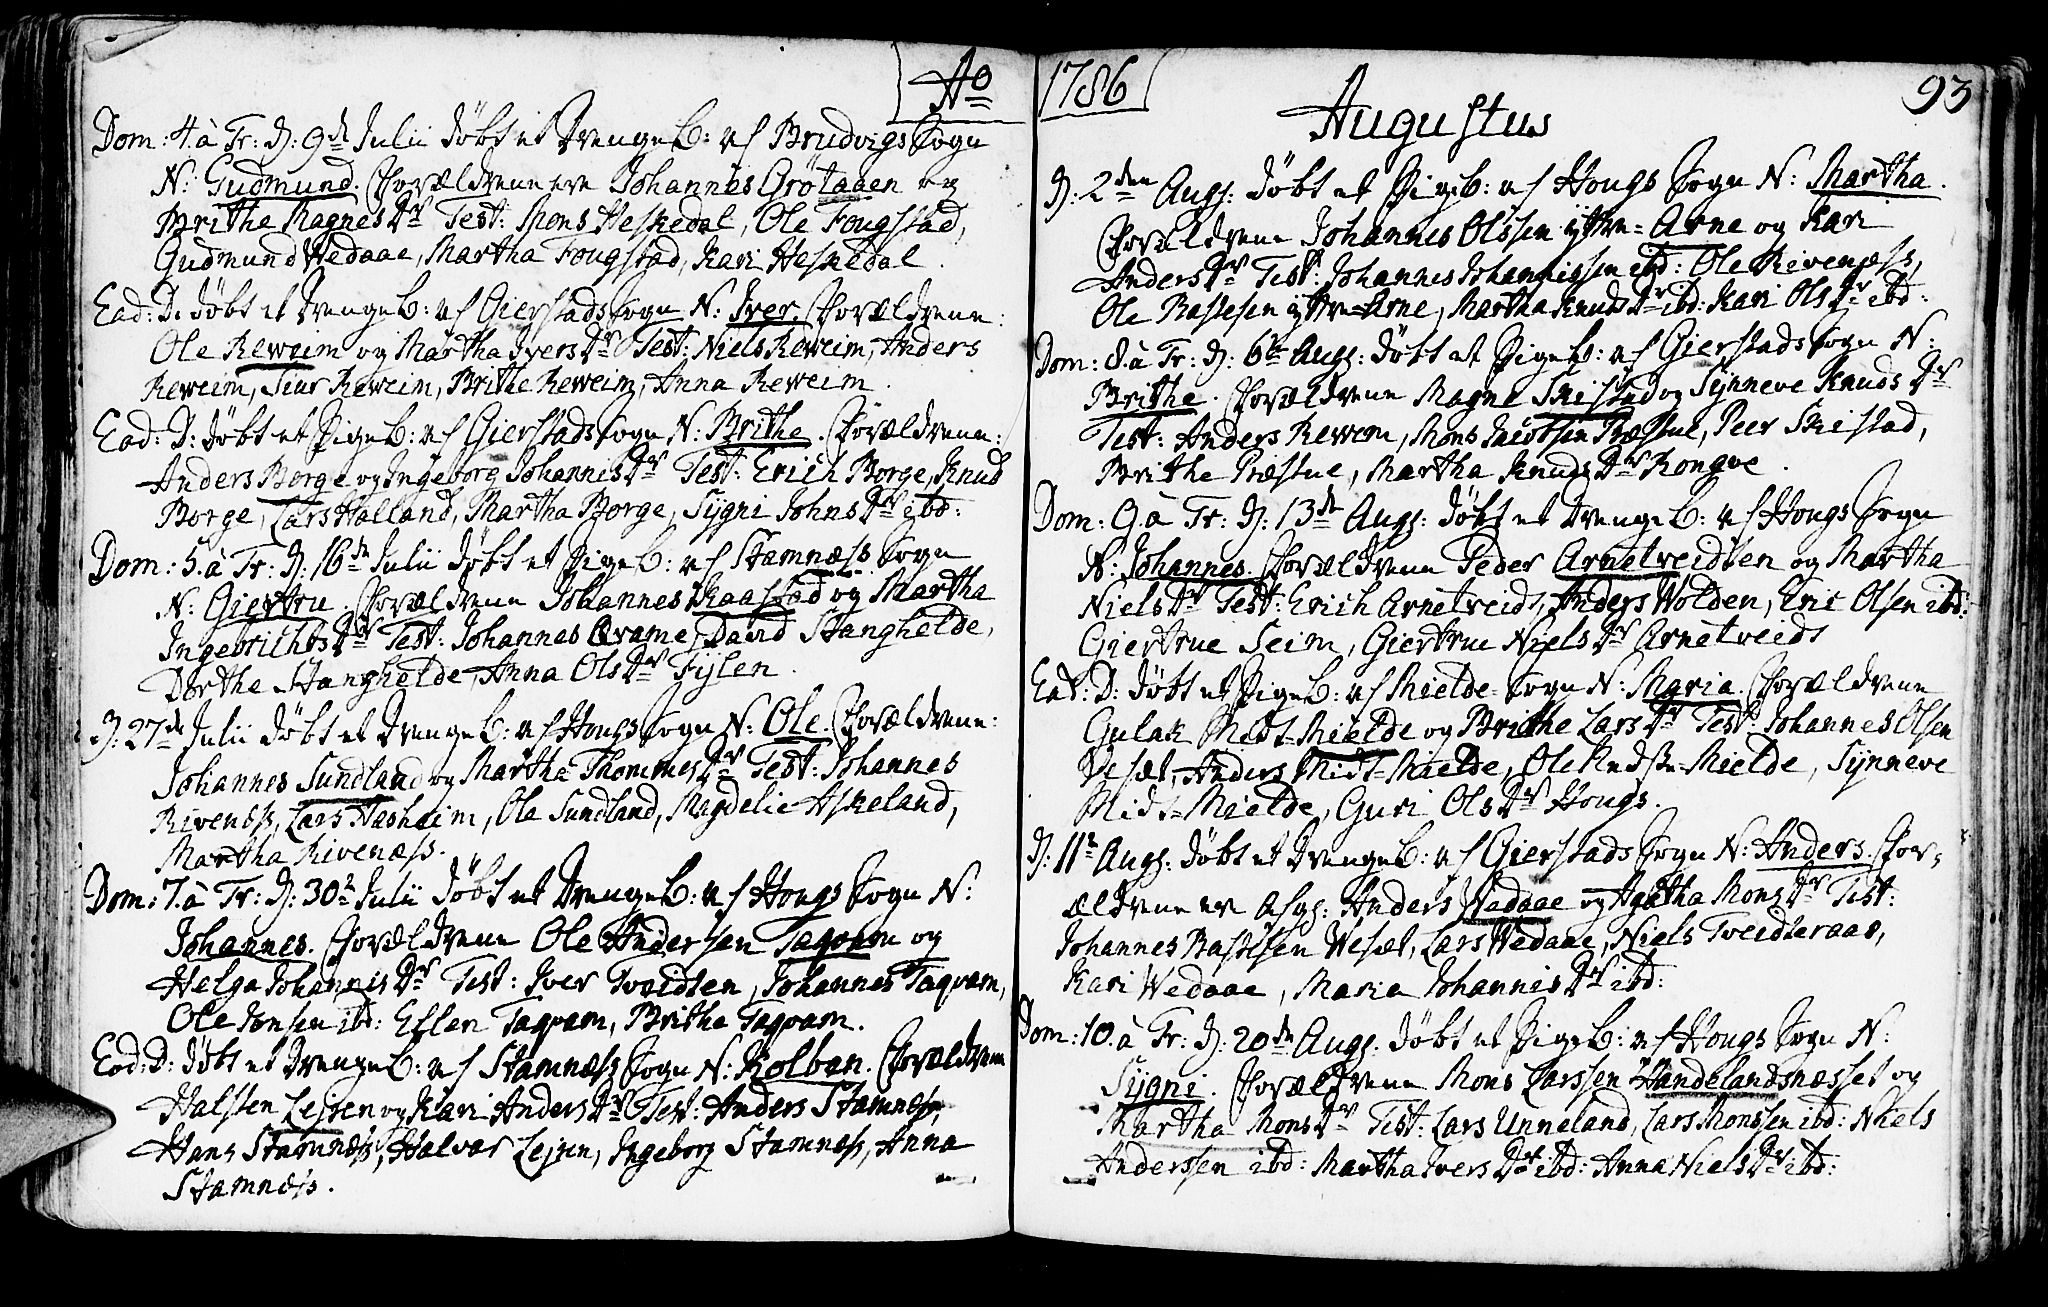 Ao
Dom: 4. à Tr: D: 9de Julii döbt et DrengeB: af Brudvigs Sogn
N: Gudmund. Forældrene ere Johannes Grötaaen og
Brithe MagnesDtr Test: Mons Heskedal, Ole Fougstad,
Gudmund Wedaae, Martha Fougstad, Kari Heskedal.
Eod: D: döbt et DrengeB: af Gierstads Sogn N: Iver. Forældrene:
Ole Reweim og Martha IversDtr Test: Niels Reweim, Anders
Reweim, Siur Reweim, Brithe Reweim, Anna Reweim.
Eod: D: döbt et PigeB: af Gierstads Sogn N: Brithe. Forældrene:
Anders Borge og Ingeborg JohannisDtr Test: Erich Borge, Knud
Borge, Lars Halland, Martha Borge, Sygni JohnsDtr ibd:
Dom: 5. à Tr: D: 16de Julii döbt et PigeB: af Stamnæss Sogn
N: Giertru. Forældrene Johannes Kaastad og Martha
IngebrichtsDtr Test: Johannes Qvame, David Stanghelde,
Dorthe Stanghelde, Anna OlsDtr Fylen.
D: 27de Julii döbt et DrengeB: af Hougs Sogn N: Ole. Forældrene:
Johannes Sundland og Martha ThommesDtr Test: Johannes
Rivenæss, Lars Hasheim, Ole Sundland, Magdelie Askeland,
Martha Rivenæss.
Dom: 7. à Tr: D: 30te Julii döbt et DrengeB: af Hougs Sogn N:
Johannes. Forældrene Ole Andersen Taqvam og
Helga JohannisDtr Test: Iver Tveidten, Johannes Taqvam,
Ole Jonsen ibd: Ellen Taqvam, Brithe Taqvam.
Eod: D: döbt et DrengeB: af Stamnæss Sogn N: Kolben. Forældrene
Halsten Lejren og Kari AndersDtr Test: Anders Stamnæss,
Hans Stamnæss, Halvor Lejren, Ingeborg Stamnæss, Anna
Stamnæss.
1786
93
Augustus
D: 2den Aug: döbt et PigeB: af Hougs Sogn N: Martha.
Forældrene Johannes Olssen yttre-Arne og Kari
AndersDtr Test: Johannes Johannissen ibd: Ole Rivenæss,
Ole Rastesen yttre-Arne, Martha KnudsDtr ibd: Kari OlsDtr ibd:
Dom: 8. à Tr: D: 6te Aug: döbt et PigeB: af Gierstads Sogn N:
Brithe. Forældrene Magne Skistad og Synneve KnudsDtr
Test: Anders Reweim, Mons Jacobsen Præstue, Peer Skistad,
Brithe Præstue, Martha KnudsDtr Rongve.
Dom: 9. à Tr: D: 13de Aug: döbt et DrengeB: af Hougs Sogn
N: Johannes. Forældrene Peder Arnetveidten og Martha
NielsDtr Test: Erich Arnetveidt, Anders Wolden, Eric Olsen ibd:
Giertrue Seim, Giertrue NielsDtr Arnetveidt
Eod: D: döbt et PigeB: af Mielde-Sogn N: Maria. Forældrene
Gulak Midt-Mielde og Brithe LarsDtr Test: Johannes Olsen
Vesæt, Anders Midt-Mielde, Ole Mielde, Synneve
Midt-Mielde, Guri OlsDtr Hougs.
D: 11te Aug: döbt et DrengeB: af Gierstads Sogn N: Anders. For-
ældrene ere Afg: Anders Wadaae og Agatha MonsDtr Test:
Johannes Rastesen Wesæt, Lars Wedaae, Niels Tveidteraas,
Kari Wedaae, Maria JohannisDtr ibd:
Dom: 10. à Tr: D: 20de Aug: döbt et PigeB: af Hougs Sogn N:
Sygni. Forældrene Mons Larssen Handelandsnæsset og
Martha MonsDtr Test: Lars Unneland, Lars Monssen ibd: Niels
Anderssen ibd: Martha IversDtr ibd: Anna NielsDtr ibd: